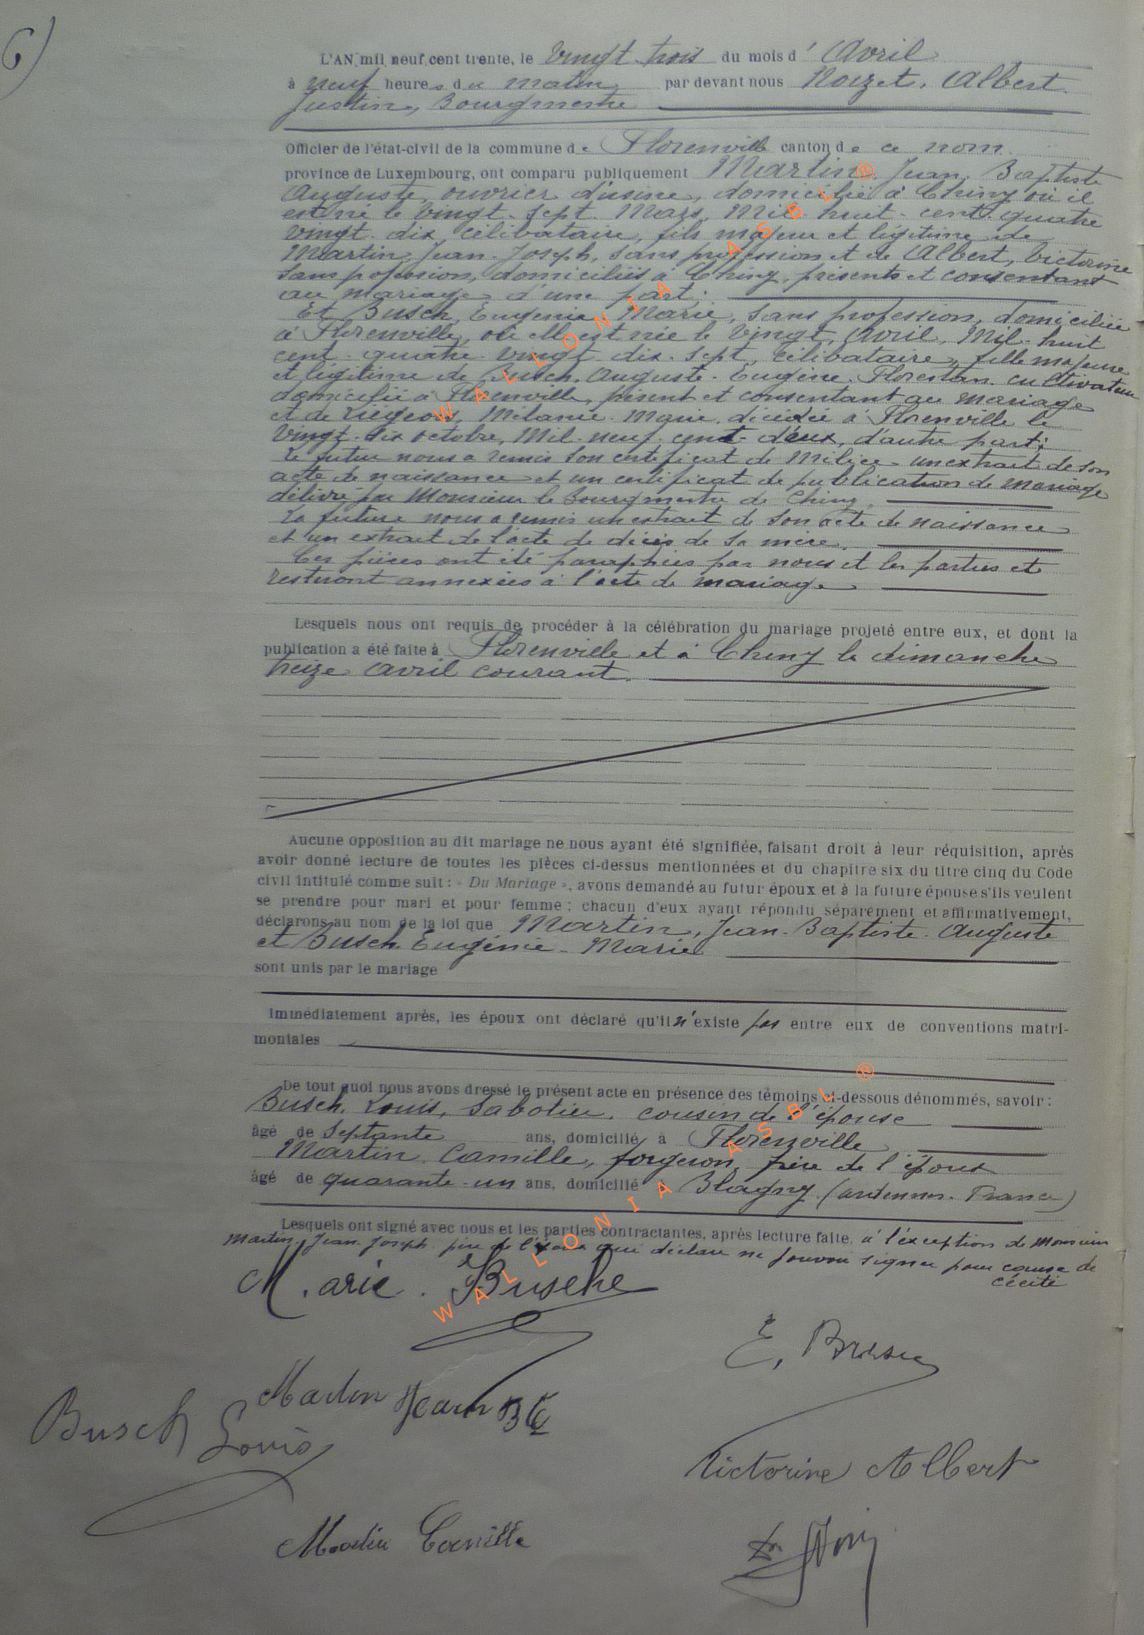 6)
L'AN mil neuf cent trente, le vingt trois du mois d' Avril
à neuf heures du matin par devant nous Nozet, Albert
Justin, Bourgmestre
Officier de l'état-civil de la commune de Florenville canton de ce nom
province de Luxembourg, ont comparu publiquement Martin, Jean, Baptiste
Auguste, ouvrier d'usine, domicilié à Chiny où il
est né le vingt-sept Mars, Mil huit-cent-quatre
vingt-dix, célibataire, fils majeur et légitime de
Martin, Jean-Joseph, sans profession et de Albert, Victorine
sans profession, domiciliés à Chiny, présents et consentant
au mariage d'une part;
Et Busch, Eugénie Marie, sans profession, domiciliée
à Florenville, où elle est née le vingt, Avril, Mil-huit
cent-quatre-vingt dix-sept, célibataire, fille majeure
et légitime de Busch, Auguste-Eugène-Florestan, cultivateur
domicilié à Florenville, présent et consentant au mariage
et de Liégeois, Mélanie-Marie, décédée à Florenville le
vingt-six octobre, Mil-neuf-cent-deux, d'autre part;
Le futur nous a remis son certificat de Milice un extrait de son
acte de naissance et un certificat de publication de mariage
délivré par Monsieur le bourgmestre de Chiny
La future nous a remis un extrait de son acte de naissance
et un extrait de l'acte de décès de sa mère.
Ces pièces ont été paraphées par nous et les parties et
resteront annexées à l'acte de mariage
Lesquels nous ont requis de procéder à la célébration du mariage projeté entre eux, et dont la
publication a été faite à Florenville et à Chiny le dimanche
treize avril courant.
Aucune opposition au dit mariage ne nous ayant été signifiée, faisant droit à leur réquisition, après
avoir donné lecture de toutes les pièces ci-dessus mentionnées et du chapitre six du titre cinq du Code
civil intitulé comme suit : « Du Mariage », avons demandé au futur époux et à la future épouse s'ils veulent
se prendre pour mari et pour femme ; chacun d'eux ayant répondu séparement et affirmativement,
déclarons au nom de la loi que Martin, Jean-Baptiste-Auguste
et Busch Eugénie-Marie
sont unis par le mariage
Immédiatement après, les époux ont déclaré qu'il n'existe pas entre eux de conventions matri-
moniales
De tout quoi nous avons dressé le présent acte en présence des témoins ci-dessous dénommés, savoir :
Busch, Louis, Sabotier, cousin de l'épouse
âgé de septante ans, domicilié à Florenville
Martin Camille, forgeron, frère de l'époux
âgé de quarante-un ans, domicilié à Blagny (Ardennes-France)
Lesquels ont signé avec nous et les parties contractantes, après lecture faite, à l'exception de Monsieur
Martin, Jean-Joseph, père de l'époux qui déclare ne pouvoir signer pour cause de
cécité
Marie. Busche
E, Busch
Martin Jean Bte
Busch Louis
Victorine Albert
Martin Camille
WALLONIA ASBL ®
WALLONIA ASBL ®